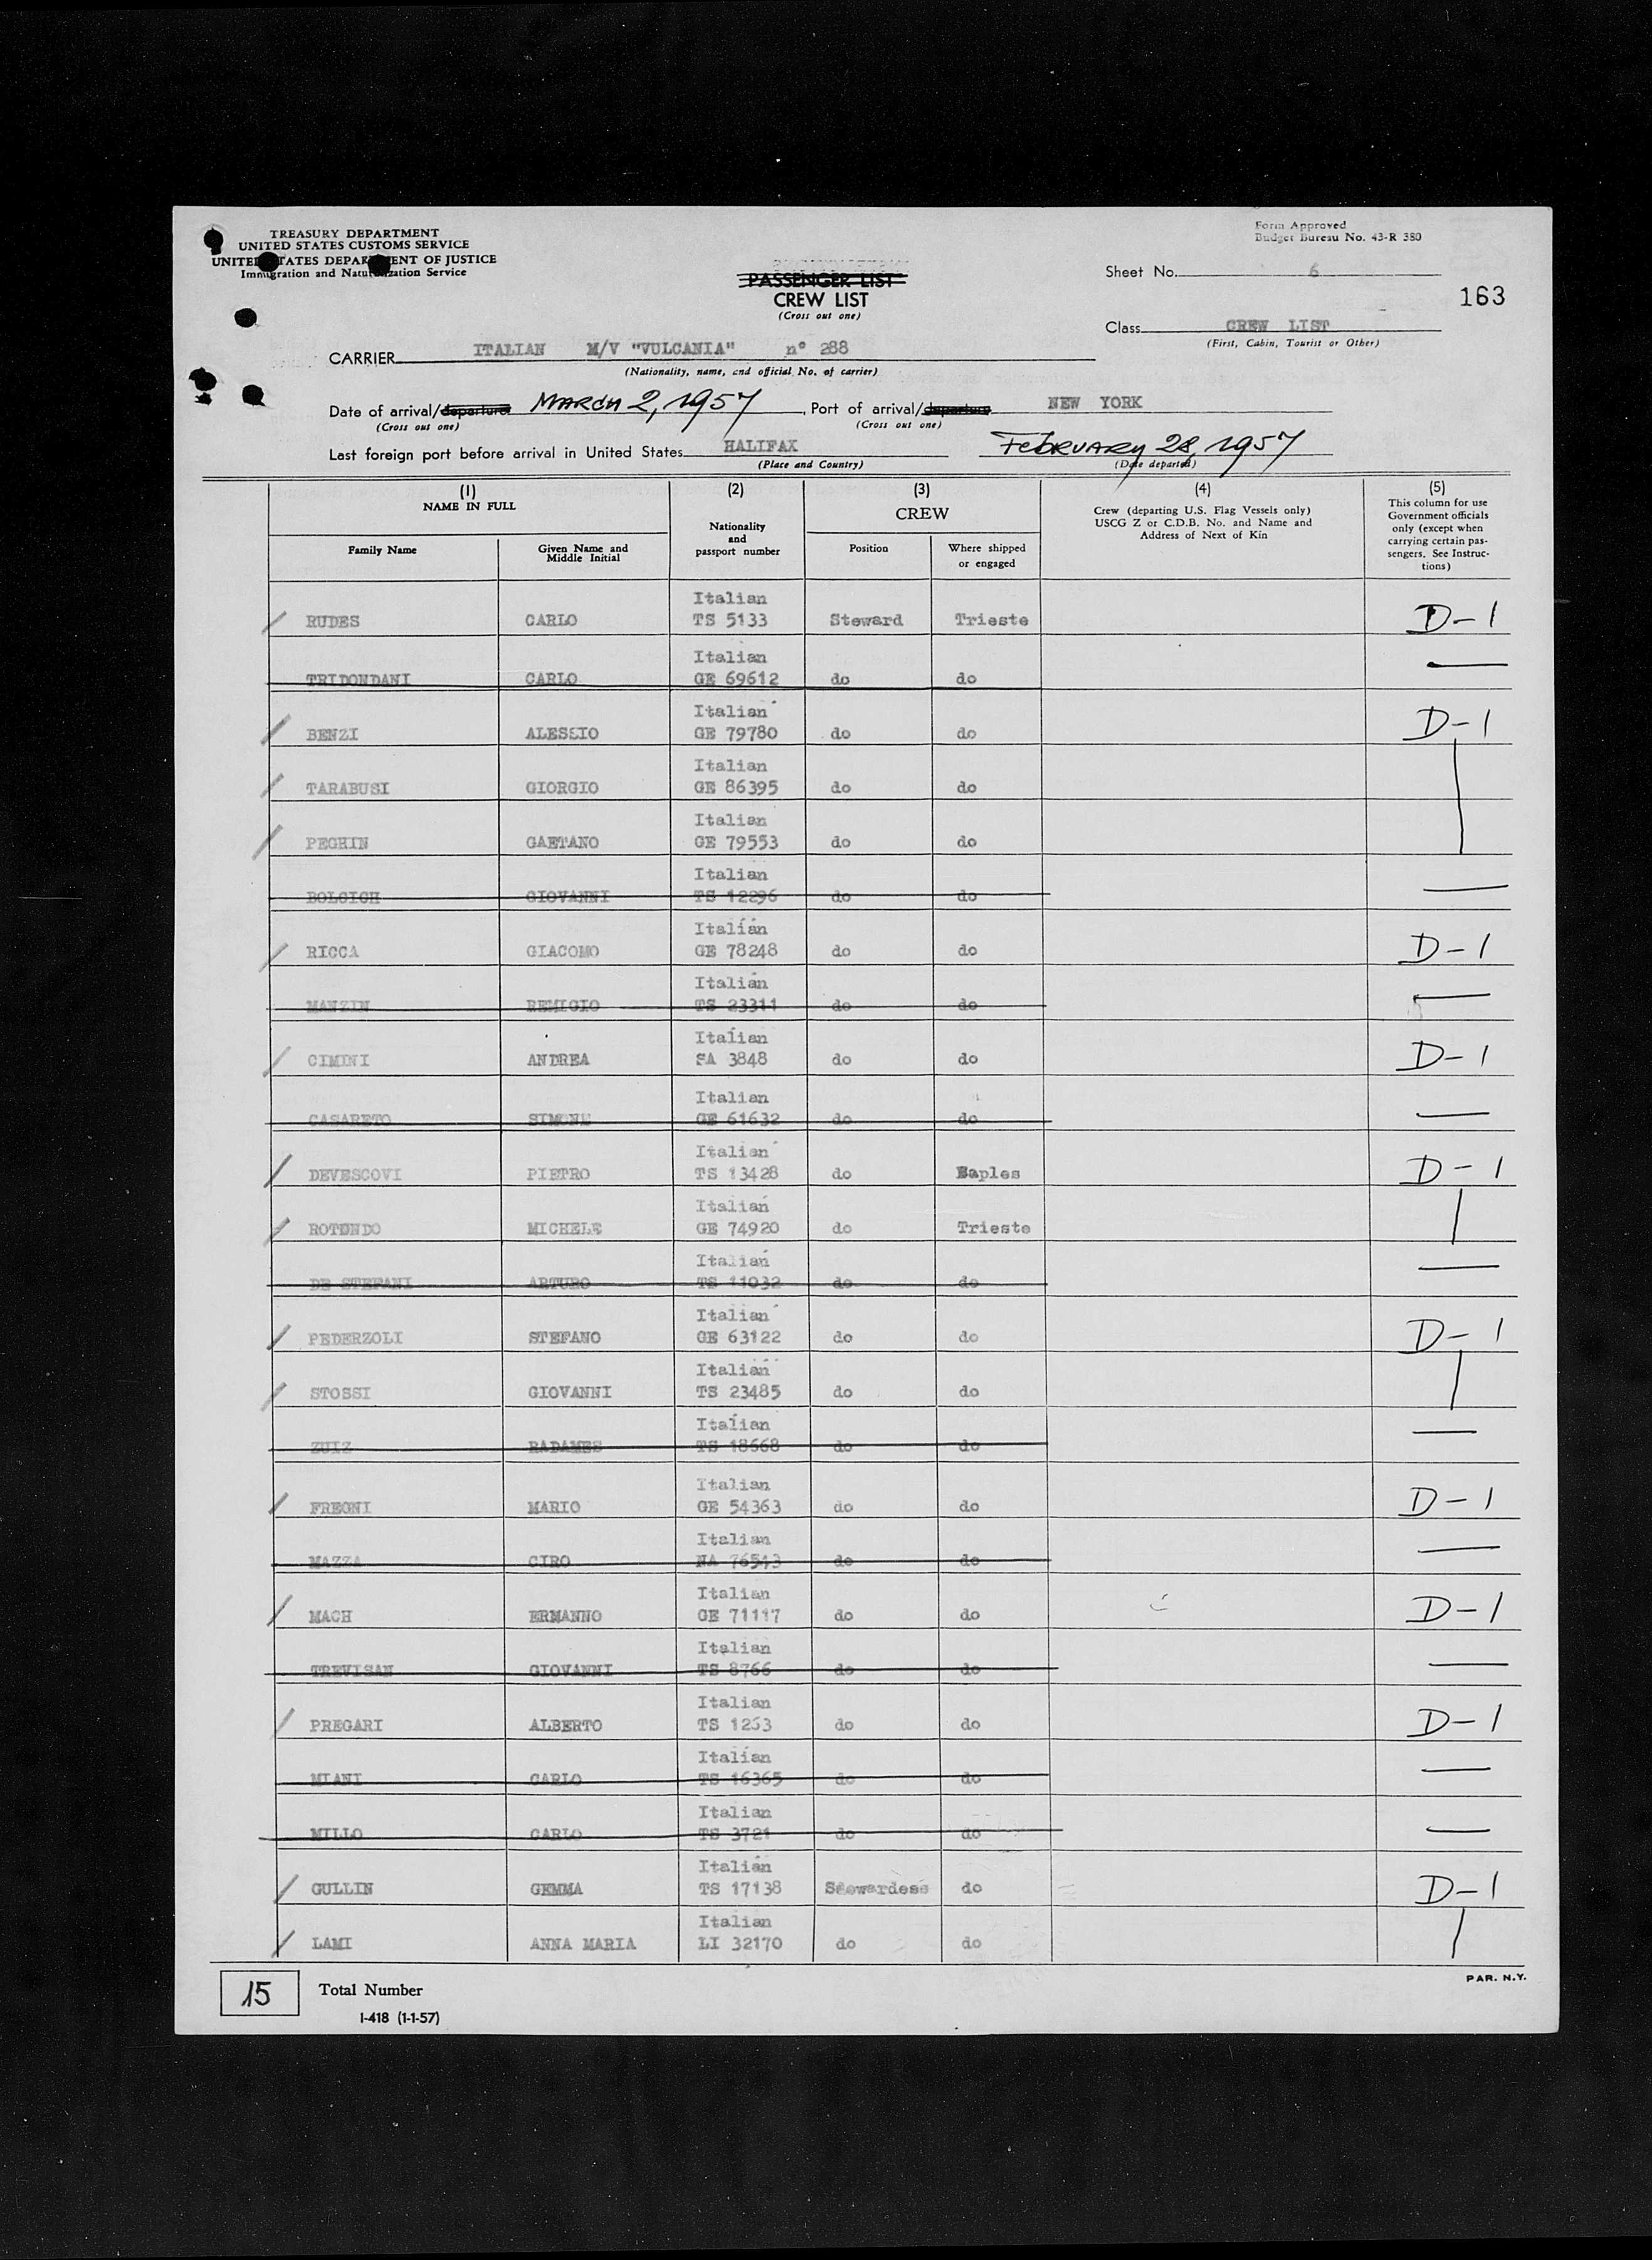 TREASURY DEPARTMENT
UNITED STATES CUSTOMS SERVICE
UNITED STATES DEPARTMENT OF JUSTICE
Immigration and Naturalization Service
Form Approved
Budget Bureau No. 43-R 380
PASSENGER LIST
CREW LIST
(Cross out one)
Sheet No. 6
163
Class CREW LIST
(First, Cabin, Tourist or Other)
CARRIER ITALIAN M/V "VULCANIA" n° 288
(Nationality, name, and official No. of carrier)
Date of arrival/departure MARCH 2, 1957, Port of arrival/departure NEW YORK
(Cross out one) (Cross out one)
Last foreign port before arrival in United States HALIFAX February 28, 1957
(Place and Country) (Date departed)
(1) NAME IN FULL
(2) Nationality and passport number
(3) CREW
(4) Crew (departing U.S. Flag Vessels only) USCG Z or C.D.B. No. and Name and Address of Next of Kin
(5) This column for use Government officials only (except when carrying certain passengers. See Instructions)
Family Name Given Name and Middle Initial Position Where shipped or engaged
Italian
RUDES CARLO TS 5133 Steward Trieste D-1
Italian
TRIDONDANI CARLO GE 69612 do do —
Italian
BENZI ALESSIO GE 79780 do do D-1
Italian
TARABUSI GIORGIO GE 86395 do do
Italian
PEGHIN GAETANO GE 79553 do do
Italian
BOLCICH GIOVANNI TS 12296 do do —
Italian
RICCA GIACOMO GE 78248 do do D-1
Italian
MANZIN REMIGIO TS 23311 do do —
Italian
CIMINI ANDREA SA 3848 do do D-1
Italian
CASARETO SIMONE GE 61632 do do —
Italian
DEVESCOVI PIETRO TS 13428 do Naples D-1
Italian
ROTONDO MICHELE GE 74920 do Trieste
Italian
DE STEFANI ARTURO TS 11032 do do —
Italian
PEDERZOLI STEFANO GE 63122 do do D-1
Italian
STOSSI GIOVANNI TS 23485 do do
Italian
ZUIZ RADAMES TS 18668 do do —
Italian
FREGNI MARIO GE 54363 do do D-1
Italian
MAZZA CIRO NA 76543 do do —
Italian
MACH ERMANNO GE 71117 do do D-1
Italian
TREVISAN GIOVANNI TS 8766 do do —
Italian
PREGARI ALBERTO TS 1263 do do D-1
Italian
MIANI CARLO TS 16365 do do —
Italian
MILLO CARLO TS 3721 do do —
Italian
GULLIN GEMMA TS 17138 Stewardess do D-1
Italian
LAMI ANNA MARIA LI 32170 do do
15 Total Number
I-418 (1-1-57)
PAR. N.Y.